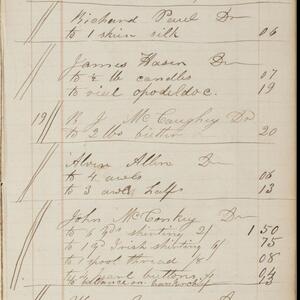 Richard Paul Dr
to 1 skin silk 06
James Wasen Dr
to 4 lb candles 07
to vial opodeldoc. 19
19 B J McCaughey Dr
to 2 lbs butter 20
Alvin Allen Dr
to 4 awls 06
to 3 awl hafts 13
John McConkey Dr
to 6 yds shirting 2/ 1 50
to 1 yd Irish shirting 6/ 75
to 1 spool thread /8 08
to 4 pearl buttons 04
to balance on 13